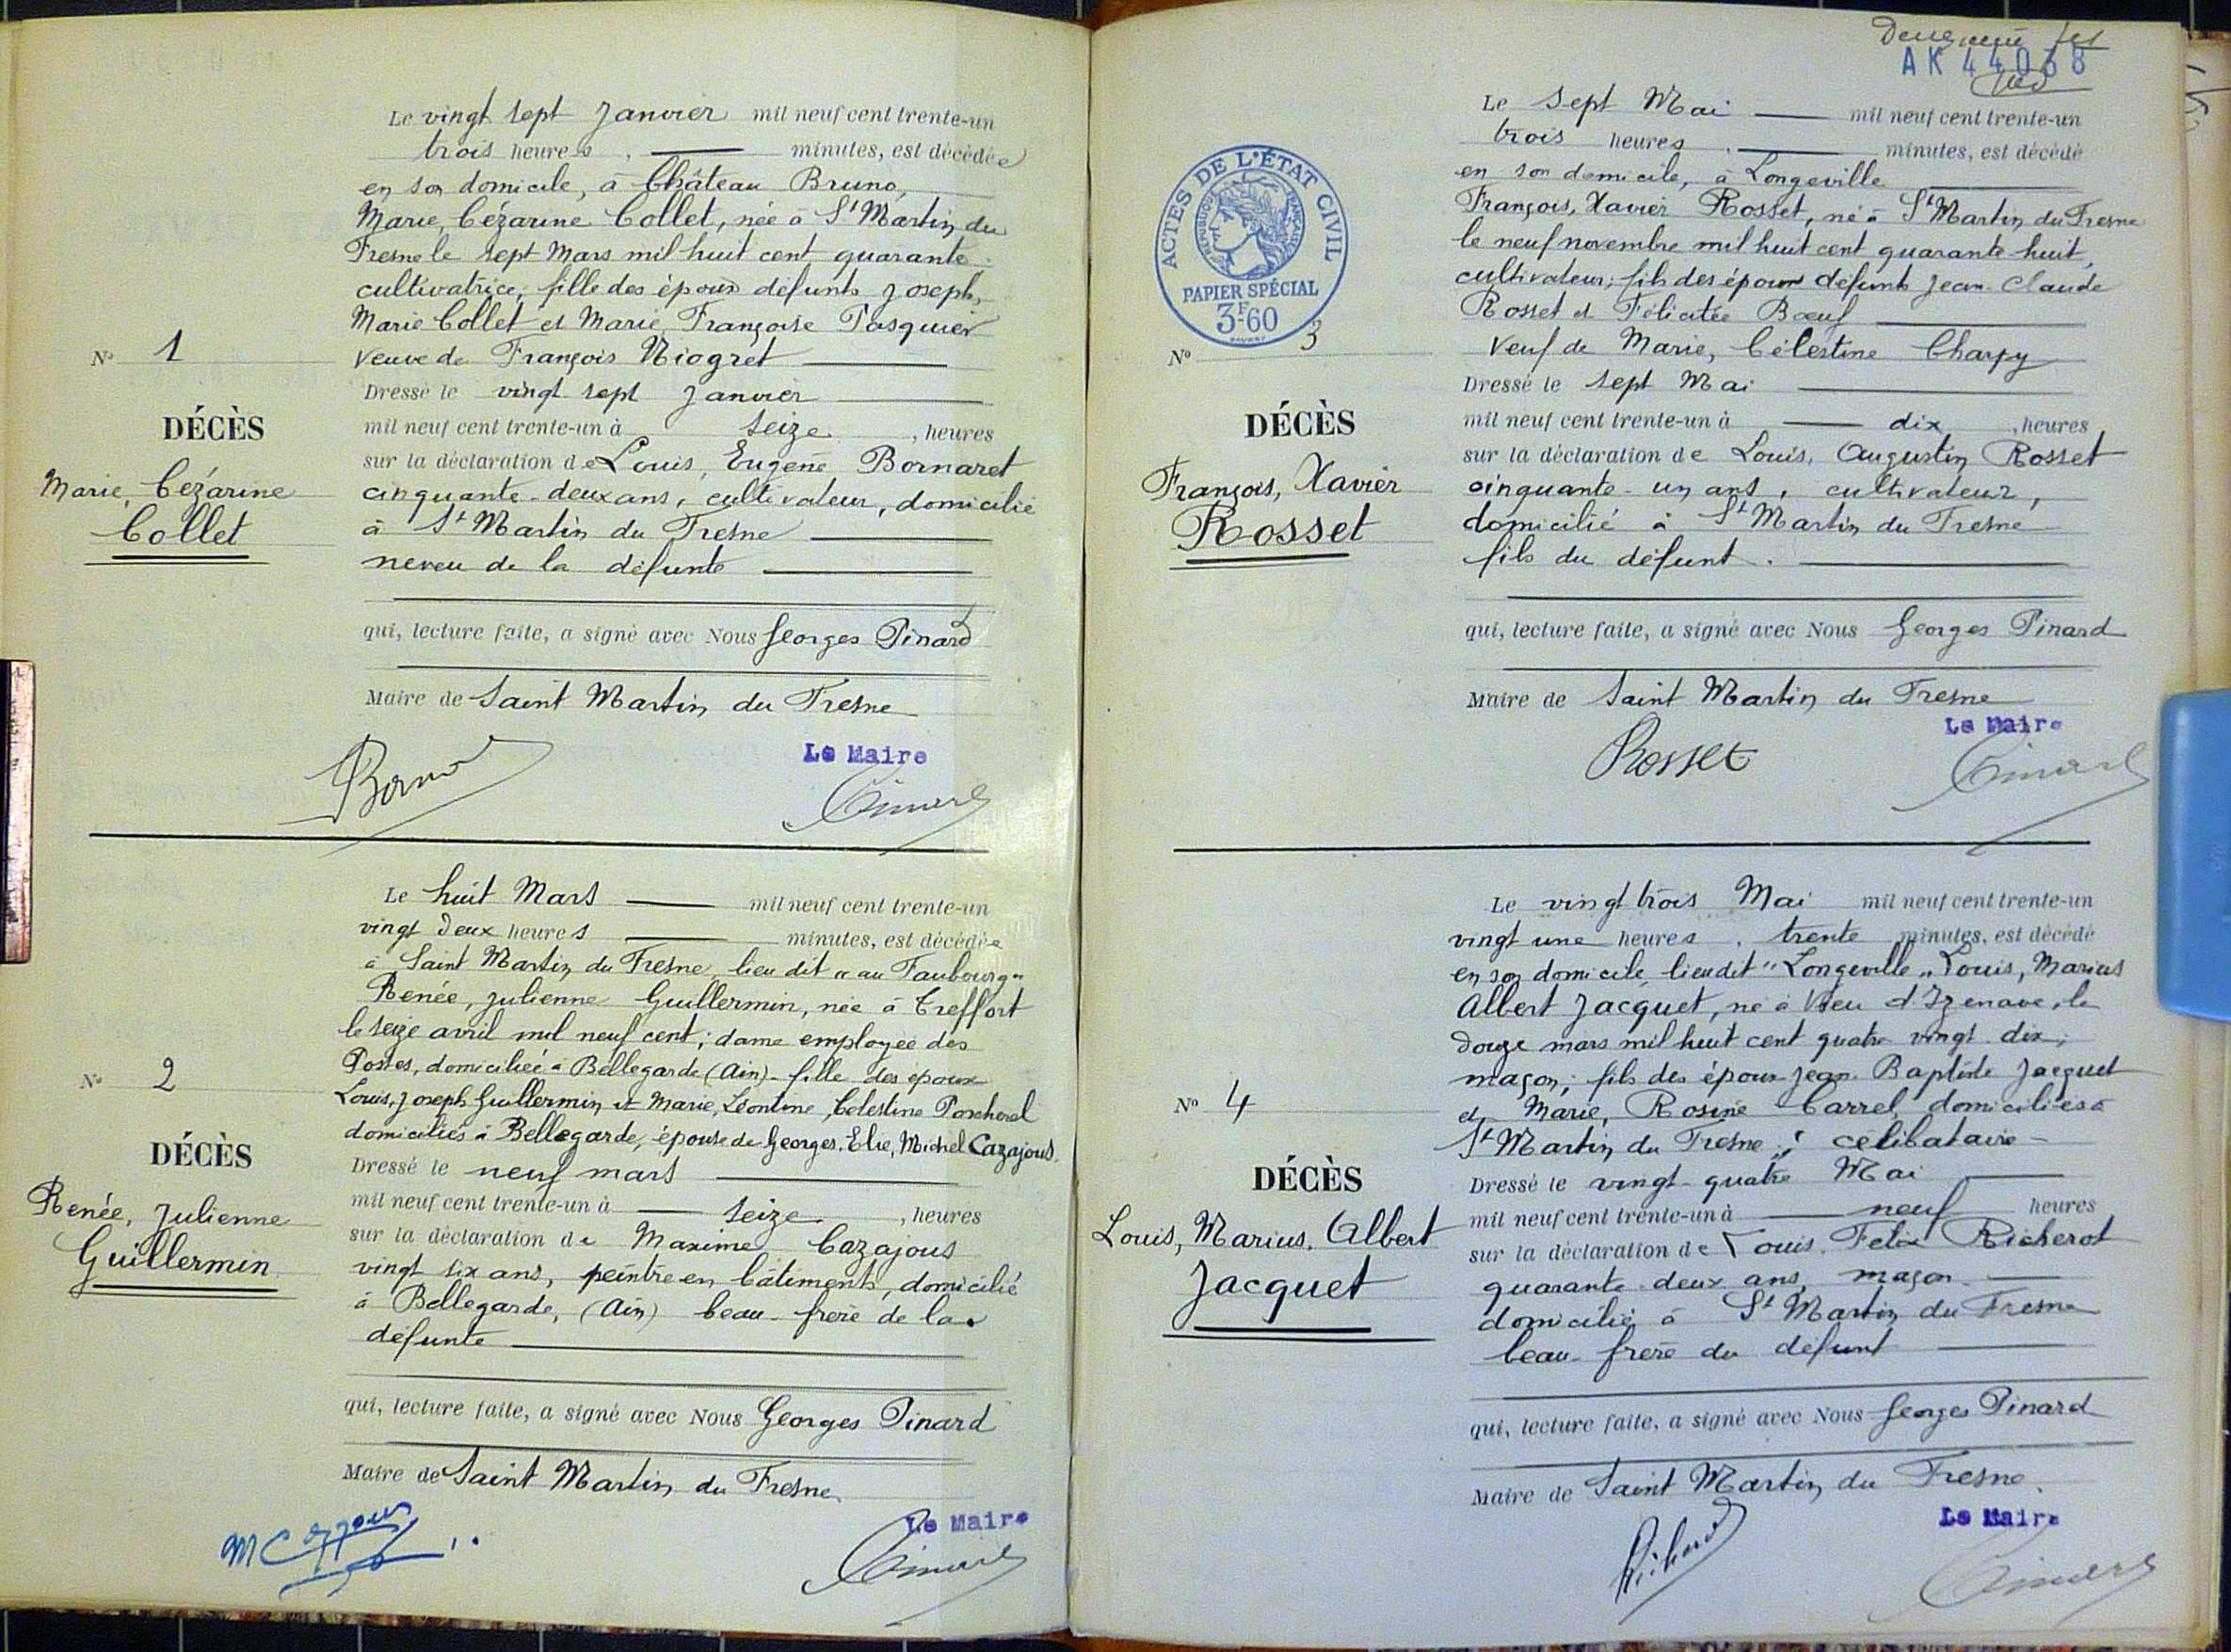 Le vingt sept Janvier mil neuf cent trente-un
trois heures, minutes, est décédée
en son domicile, à Château Bruno,
Marie, Cézarine Collet, née à St Martin du
Fresne le sept Mars mil huit cent quarante
cultivatrice, fille des époux défunts Joseph,
Marie Collet et Marie, Françoise Pasquier
N° 1
veuve de François Niogret
Dressé le vingt sept Janvier
DÉCÈS
mil neuf cent trente-un à seize, heures
sur la déclaration de Louis, Eugène Bornaret
Marie, Cézarine
Collet
cinquante-deux ans, cultivateur, domicilié
à St Martin du Fresne
neveu de la défunte
qui, lecture faite, a signé avec Nous Georges Pinard
Maire de Saint Martin du Fresne
Le Maire
Le huit Mars mil neuf cent trente-un
vingt deux heures minutes, est décédée
à Saint Martin du Fresne, lieu dit "au Faubourg"
Renée, Julienne Guillermin, née à Treffort
le seize avril mil neuf cent; dame employée des
Postes, domiciliée à Bellegarde (Ain) - fille des époux
N° 2
Louis, Joseph Guillermin et Marie, Léontine, Célestine
domiciliés à Bellegarde, épouse de Georges, Elie, Michel Cazajous.
DÉCÈS
Dressé le neuf mars
mil neuf cent trente-un à seize, heures
Renée, Julienne
Guillermin
sur la déclaration de Maxime Cazajous
vingt six ans, peintre en bâtiments, domicilié
à Bellegarde, (Ain) beau-frère de la
défunte
qui, lecture faite, a signé avec Nous Georges Pinard
Maire de Saint Martin du Fresne
Le Maire
AK 44038
ACTES DE L'ÉTAT CIVIL
RÉPUBLIQUE FRANÇAISE
PAPIER SPÉCIAL
3F60
Le sept Mai mil neuf cent trente-un
trois heures, minutes, est décédé
en son domicile, à Longeville
François, Xavier Rosset, né à St Martin du Fresne
le neuf novembre mil huit cent quarante huit,
cultivateur; fils des époux défunts Jean-Claude
Rosset et Félicitée Bœuf
N° 3
Veuf de Marie, Célestine Charpy
Dressé le sept Mai
DÉCÈS
mil neuf cent trente-un à dix, heures
sur la déclaration de Louis, Augustin Rosset
François, Xavier
Rosset
cinquante-un ans, cultivateur,
domicilié à St Martin du Fresne
fils du défunt.
qui, lecture faite, a signé avec Nous Georges Pinard
Maire de Saint Martin du Fresne
Le Maire
Rosset
Le vingt trois Mai mil neuf cent trente-un
vingt une heures, trente minutes, est décédé
en son domicile, lieu dit "Longeville" Louis, Marius
Albert Jacquet, né à Vieu d'Izenave, le
douze mars mil huit cent quatre vingt dix;
maçon; fils des époux Jean-Baptiste Jacquet
N° 4
et Marie, Rosine Carrel, domiciliés à
St Martin du Fresne; célibataire -
DÉCÈS
Dressé le vingt-quatre Mai
mil neuf cent trente-un à neuf heures
Louis, Marius, Albert
Jacquet
sur la déclaration de Louis, Felix Richerot
quarante-deux ans, maçon
domicilié à St Martin du Fresne
beau-frère du défunt
qui, lecture faite, a signé avec Nous Georges Pinard
Maire de Saint Martin du Fresne.
Le Maire